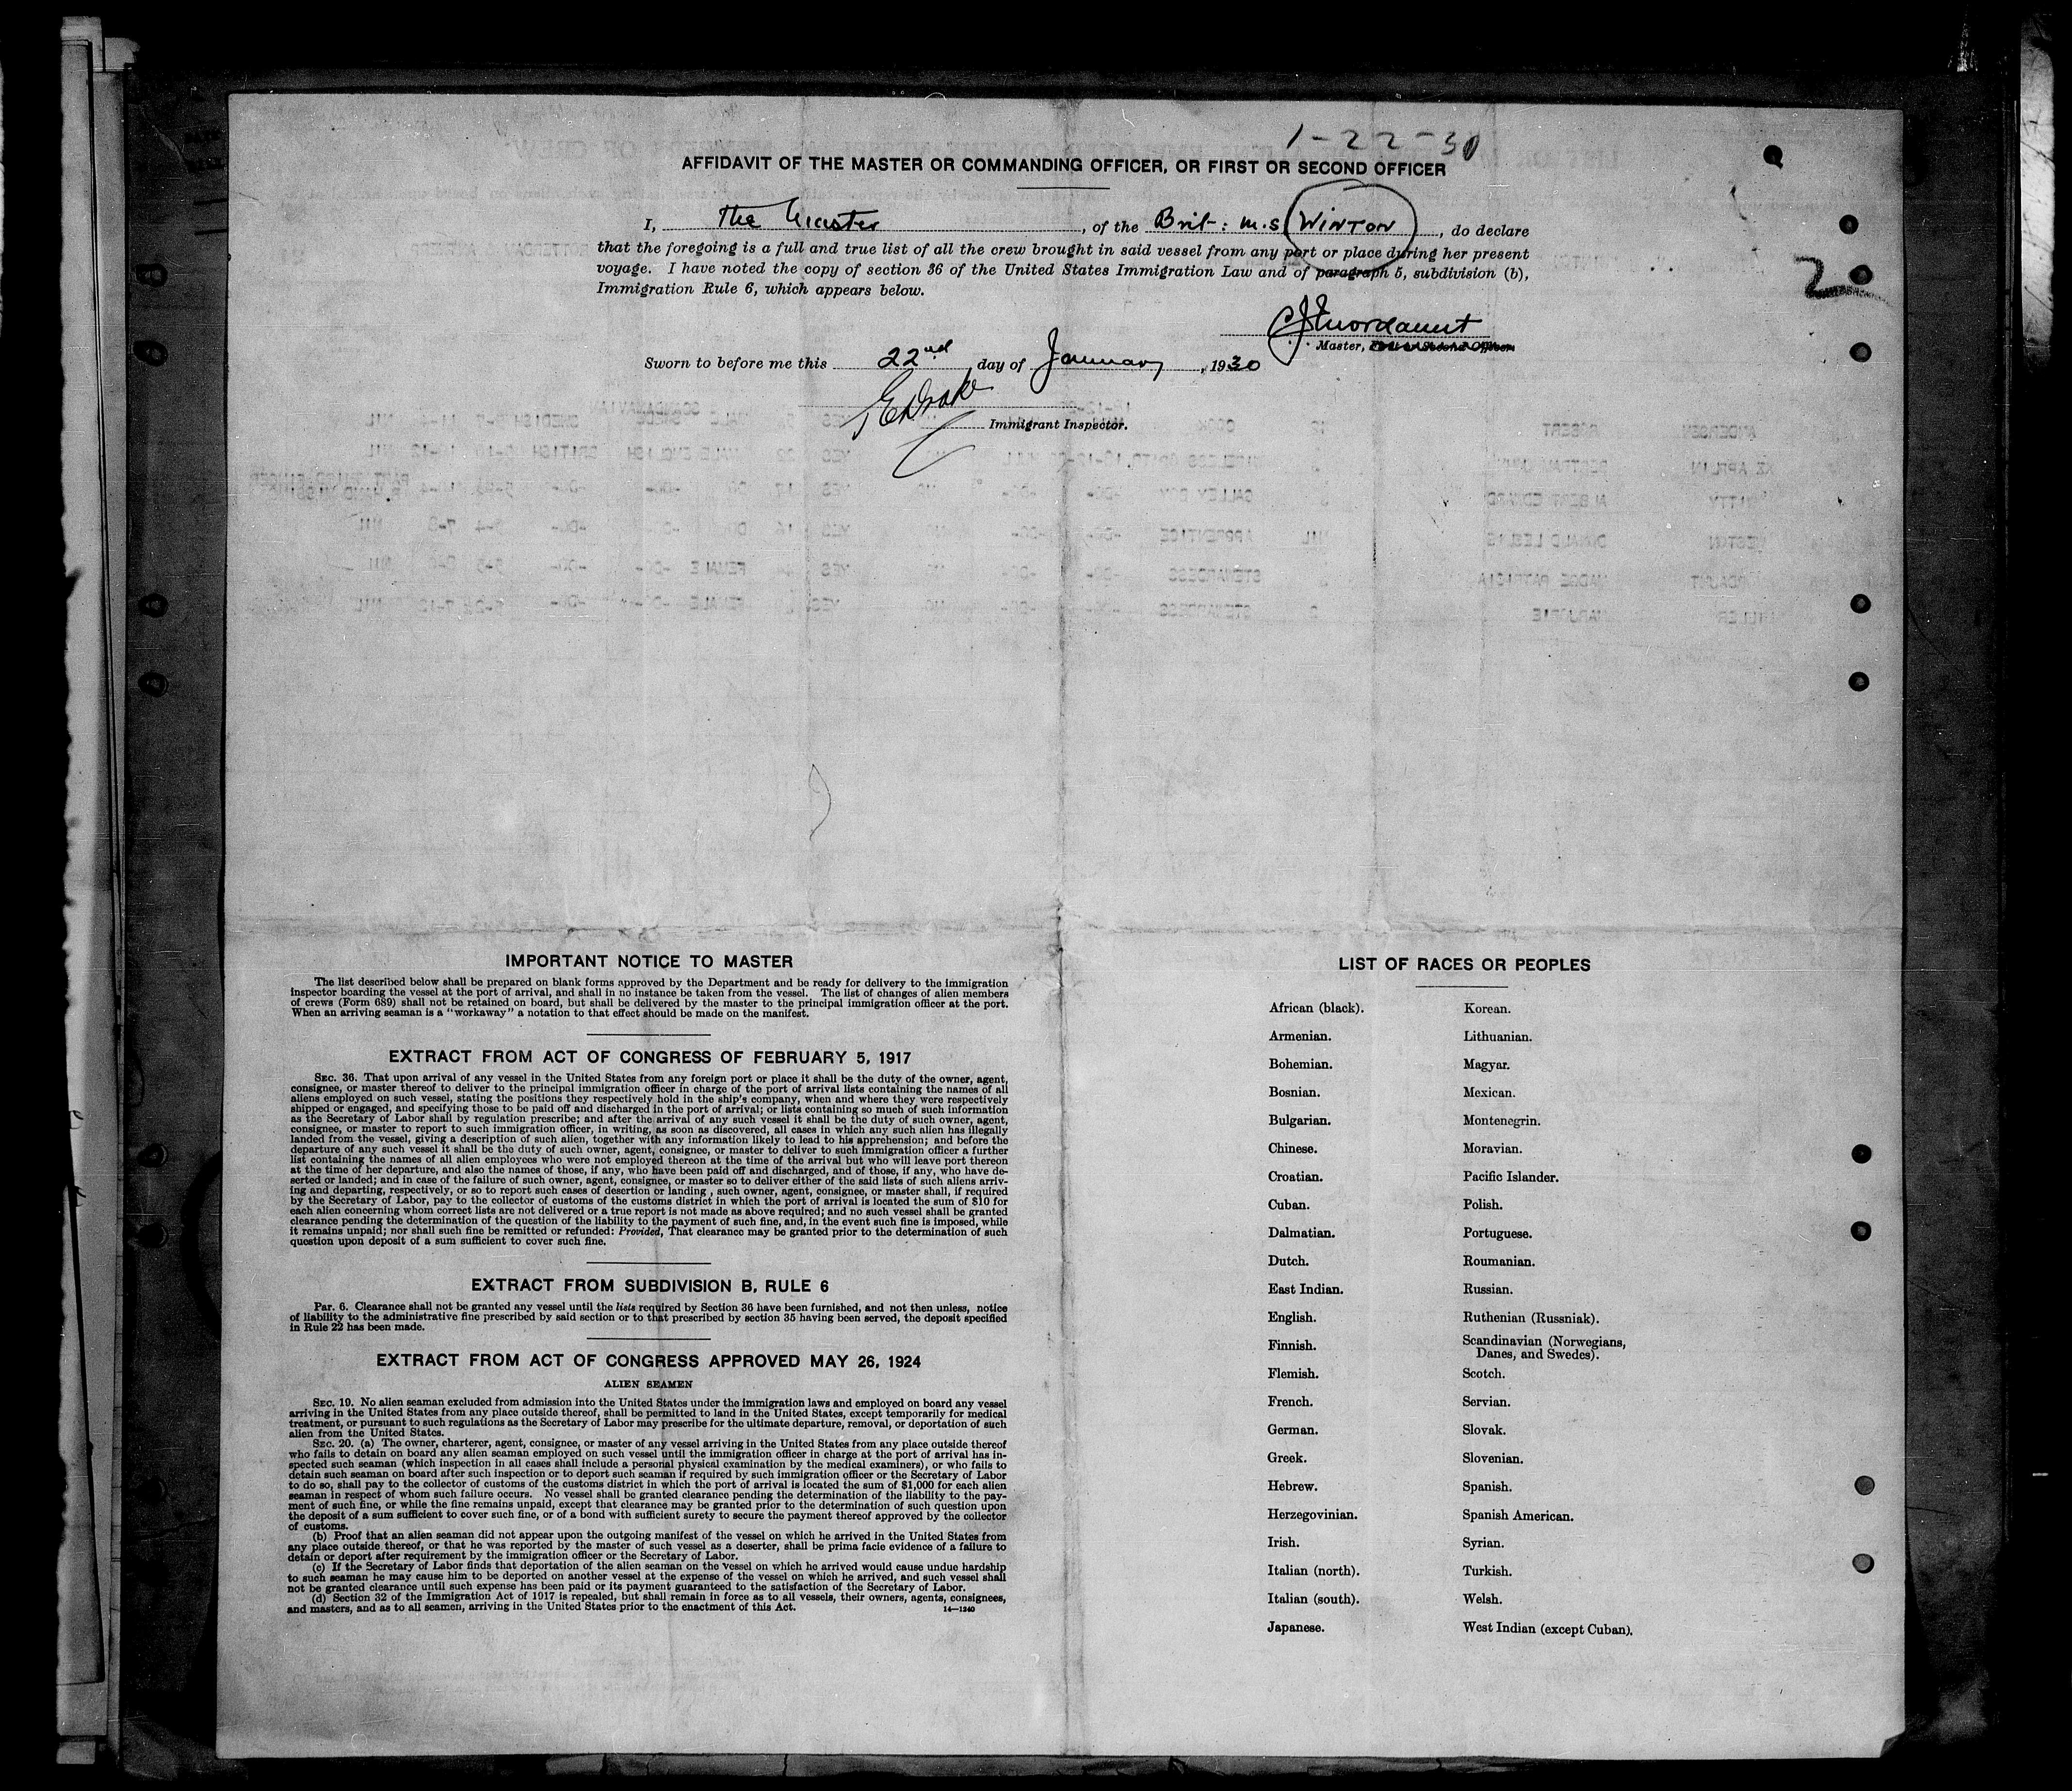 1-22-30
AFFIDAVIT OF THE MASTER OR COMMANDING OFFICER, OR FIRST OR SECOND OFFICER
I, The Master, of the Brit: M.S WINTON, do declare
that the foregoing is a full and true list of all the crew brought in said vessel from any port or place during her present
voyage. I have noted the copy of section 36 of the United States Immigration Law and of paragraph 5, subdivision (b),
Immigration Rule 6, which appears below.
2
Master, First or Second Officer.
Sworn to before me this 22nd day of January, 1930
Immigrant Inspector.
IMPORTANT NOTICE TO MASTER
The list described below shall be prepared on blank forms approved by the Department and be ready for delivery to the immigration
inspector boarding the vessel at the port of arrival, and shall in no instance be taken from the vessel. The list of changes of alien members
of crews (Form 689) shall not be retained on board, but shall be delivered by the master to the principal immigration officer at the port.
When an arriving seaman is a "workaway" a notation to that effect should be made on the manifest.
EXTRACT FROM ACT OF CONGRESS OF FEBRUARY 5, 1917
SEC. 36. That upon arrival of any vessel in the United States from any foreign port or place it shall be the duty of the owner, agent,
consignee, or master thereof to deliver to the principal immigration officer in charge of the port of arrival lists containing the names of all
aliens employed on such vessel, stating the positions they respectively hold in the ship's company, when and where they were respectively
shipped or engaged, and specifying those to be paid off and discharged in the port of arrival; or lists containing so much of such information
as the Secretary of Labor shall by regulation prescribe; and after the arrival of any such vessel it shall be the duty of such owner, agent,
consignee, or master to report to such immigration officer, in writing, as soon as discovered, all cases in which any such alien has illegally
landed from the vessel, giving a description of such alien, together with any information likely to lead to his apprehension; and before the
departure of any such vessel it shall be the duty of such owner, agent, consignee, or master to deliver to such immigration officer a further
list containing the names of all alien employees who were not employed thereon at the time of the arrival but who will leave port thereon
at the time of her departure, and also the names of those, if any, who have been paid off and discharged, and of those, if any, who have de-
serted or landed; and in case of the failure of such owner, agent, consignee, or master so to deliver either of the said lists of such aliens arriv-
ing and departing, respectively, or so to report such cases of desertion or landing, such owner, agent, consignee, or master shall, if required
by the Secretary of Labor, pay to the collector of customs of the customs district in which the port of arrival is located the sum of $10 for
each alien concerning whom correct lists are not delivered or a true report is not made as above required; and no such vessel shall be granted
clearance pending the determination of the question of the liability to the payment of such fine, and, in the event such fine is imposed, while
it remains unpaid; nor shall such fine be remitted or refunded: Provided, That clearance may be granted prior to the determination of such
question upon deposit of a sum sufficient to cover such fine.
EXTRACT FROM SUBDIVISION B, RULE 6
Par. 6. Clearance shall not be granted any vessel until the lists required by Section 36 have been furnished, and not then unless, notice
of liability to the administrative fine prescribed by said section or to that prescribed by section 35 having been served, the deposit specified
in Rule 22 has been made.
EXTRACT FROM ACT OF CONGRESS APPROVED MAY 26, 1924
ALIEN SEAMEN
SEC. 19. No alien seaman excluded from admission into the United States under the immigration laws and employed on board any vessel
arriving in the United States from any place outside thereof, shall be permitted to land in the United States, except temporarily for medical
treatment, or pursuant to such regulations as the Secretary of Labor may prescribe for the ultimate departure, removal, or deportation of such
alien from the United States.
SEC. 20. (a) The owner, charterer, agent, consignee, or master of any vessel arriving in the United States from any place outside thereof
who fails to detain on board any alien seaman employed on such vessel until the immigration officer in charge at the port of arrival has in-
spected such seaman (which inspection in all cases shall include a personal physical examination by the medical examiners), or who fails to
detain such seaman on board after such inspection or to deport such seaman if required by such immigration officer or the Secretary of Labor
to do so, shall pay to the collector of customs of the customs district in which the port of arrival is located the sum of $1,000 for each alien
seaman in respect of whom such failure occurs. No vessel shall be granted clearance pending the determination of the liability to the pay-
ment of such fine, or while the fine remains unpaid, except that clearance may be granted prior to the determination of such question upon
the deposit of a sum sufficient to cover such fine, or of a bond with sufficient surety to secure the payment thereof approved by the collector
of customs.
(b) Proof that an alien seaman did not appear upon the outgoing manifest of the vessel on which he arrived in the United States from
any place outside thereof, or that he was reported by the master of such vessel as a deserter, shall be prima facie evidence of a failure to
detain or deport after requirement by the immigration officer or the Secretary of Labor.
(c) If the Secretary of Labor finds that deportation of the alien seaman on the vessel on which he arrived would cause undue hardship
to such seaman he may cause him to be deported on another vessel at the expense of the vessel on which he arrived, and such vessel shall
not be granted clearance until such expense has been paid or its payment guaranteed to the satisfaction of the Secretary of Labor.
(d) Section 32 of the Immigration Act of 1917 is repealed, but shall remain in force as to all vessels, their owners, agents, consignees,
and masters, and as to all seamen, arriving in the United States prior to the enactment of this Act.
14—1240
LIST OF RACES OR PEOPLES
African (black).
Armenian.
Bohemian.
Bosnian.
Bulgarian.
Chinese.
Croatian.
Cuban.
Dalmatian.
Dutch.
East Indian.
English.
Finnish.
Flemish.
French.
German.
Greek.
Hebrew.
Herzegovinian.
Irish.
Italian (north).
Italian (south).
Japanese.
Korean.
Lithuanian.
Magyar.
Mexican.
Montenegrin.
Moravian.
Pacific Islander.
Polish.
Portuguese.
Roumanian.
Russian.
Ruthenian (Russniak).
Scandinavian (Norwegians,
Danes, and Swedes).
Scotch.
Servian.
Slovak.
Slovenian.
Spanish.
Spanish American.
Syrian.
Turkish.
Welsh.
West Indian (except Cuban).